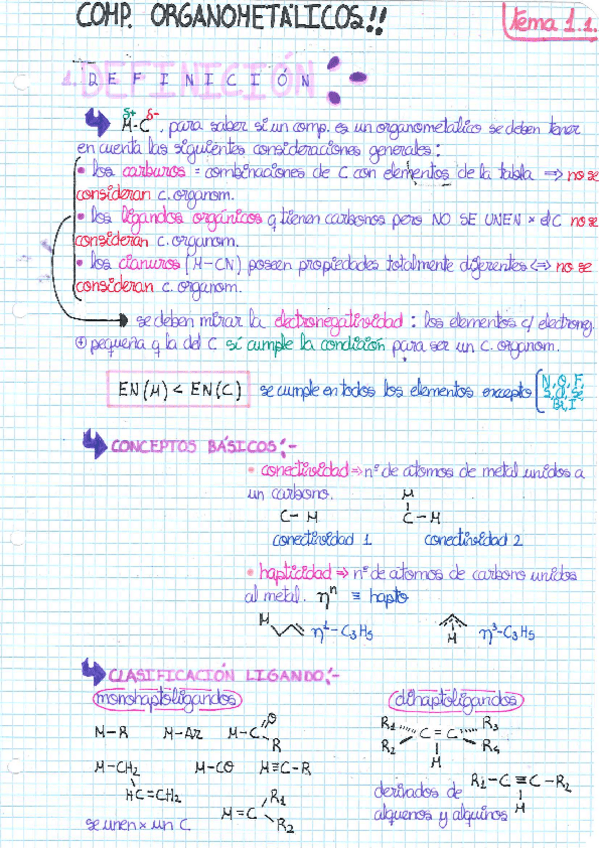 COMP. ORGANOMETÁLICOS!!
Tema 1.1.
1. DEFINICIÓN
δ+ δ-
M-C, para saber si un comp. es un organometálico se deben tener
en cuenta las siguientes consideraciones generales:
• los carburos = combinaciones de C con elementos de la tabla ⇒ no se
consideran c. organom.
• los ligandos orgánicos q tienen carbonos pero NO SE UNEN × el C no se
consideran c. organom.
• los cianuros (M-CN) poseen propiedades totalmente diferentes ⇔ no se
consideran c. organom.
se deben mirar la electronegatividad: los elementos c/ electroneg.
⊕ pequeña q la del C sí cumple la condición para ser un c. organom.
EN(M) < EN(C) se cumple en todos los elementos excepto N, O, F,
S, Cl, Se,
Br, I
CONCEPTOS BÁSICOS:-
• conectividad ⇒ nº de átomos de metal unidos a
un carbono.
M
C-M C-M
conectividad 1 conectividad 2
• hapticidad ⇒ nº de átomos de carbono unidos
al metal. ηⁿ ≡ hapto
M η¹-C3H5 M η³-C3H5
CLASIFICACIÓN LIGANDO:-
monohaptoligandos dihaptoligandos
M-R M-Ar M-C O R
R1 R2 C=C R3 R4
M
M-CH2 M-CO M≡C-R
HC=CH2
M=C R1 R2
se unen × un C
derivados de R1-C≡C-R2
alquenos y alquinos M